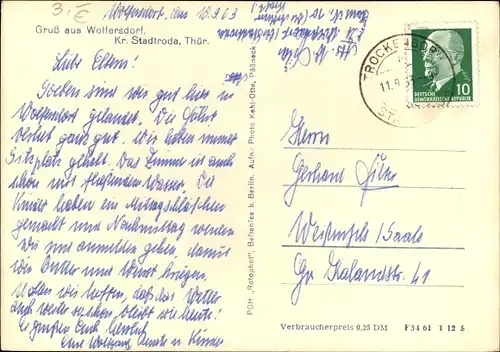 3.- €
Wolfersdorf, den 18.9.63
Gruß aus Wolfersdorf,
Kr. Stadtroda, Thür.
Liebe Eltern!
Soeben sind wir gut hier in
Wolfersdorf gelandet. Die Fahrt
verlief ganz gut. Wir haben immer
Sitzplatz gehabt. Das Zimmer ist auch
schön mit fließendem Wasser. Die
Kinder haben ein Mittagsschläfchen
gemacht und Nachmittag werden
wir uns anmelden gehen, damit
wir Butter und Wurst kriegen.
Wollen wir hoffen, daß das Wetter
auch weiter so schön bleibt wie heute!
Es grüßen Euch herzlichst
Eure Wolfgang, und Kinder
PGH „Rotophot", Bestensee b. Berlin. Aufn.: Photo Kahl-Otte, Pößneck
TROCKENBORN
DEUTSCHE
DEMOKRATISCHE REPUBLIK
10
Herrn
Gerhard
Weißenfels/Saale
Gr. Kalandstr. 41
Verbraucherpreis 0,25 DM F 34 61 1 12 5